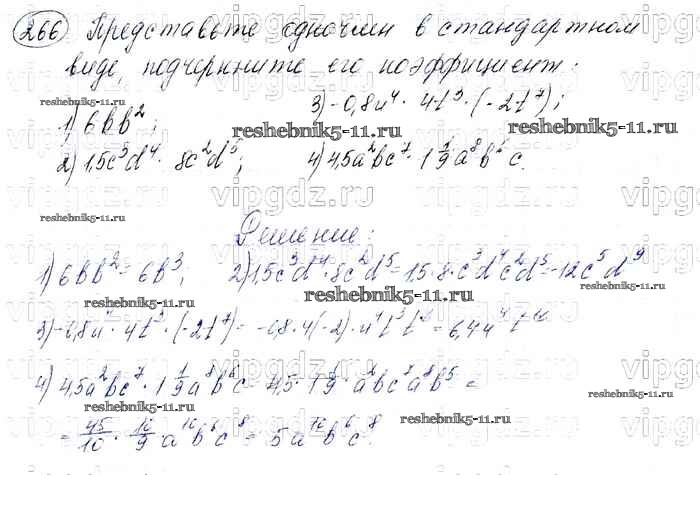 266 Представьте одночлен в стандартном
виде, подчеркните его коэффициент:
1) 6bb²; 3) -0,8u⁴ · 4t³ · (-2t⁷);
2) 1,5c³d⁴ · 8c²d⁵; 4) 4,5a²bc⁷ · 1 1/9 a⁸b⁵c.
Решение:
1) 6bb² = 6b³; 2) 1,5c³d⁴ · 8c²d⁵ = 1,5 · 8 · c³d⁴c²d⁵ = 12c⁵d⁹
3) -0,8u⁴ · 4t³ · (-2t⁷) = -0,8 · 4(-2) · u⁴t³t⁷ = 6,4u⁴t¹⁰
4) 4,5a²bc⁷ · 1 1/9 a⁸b⁵c = 4,5 · 1 1/9 · a²bc⁷a⁸b⁵ =
= 45/10 · 10/9 a¹⁰b⁶c⁸ = 5a¹⁰b⁶c⁸.
reshebnik5-11.ru
vipgdz.ru